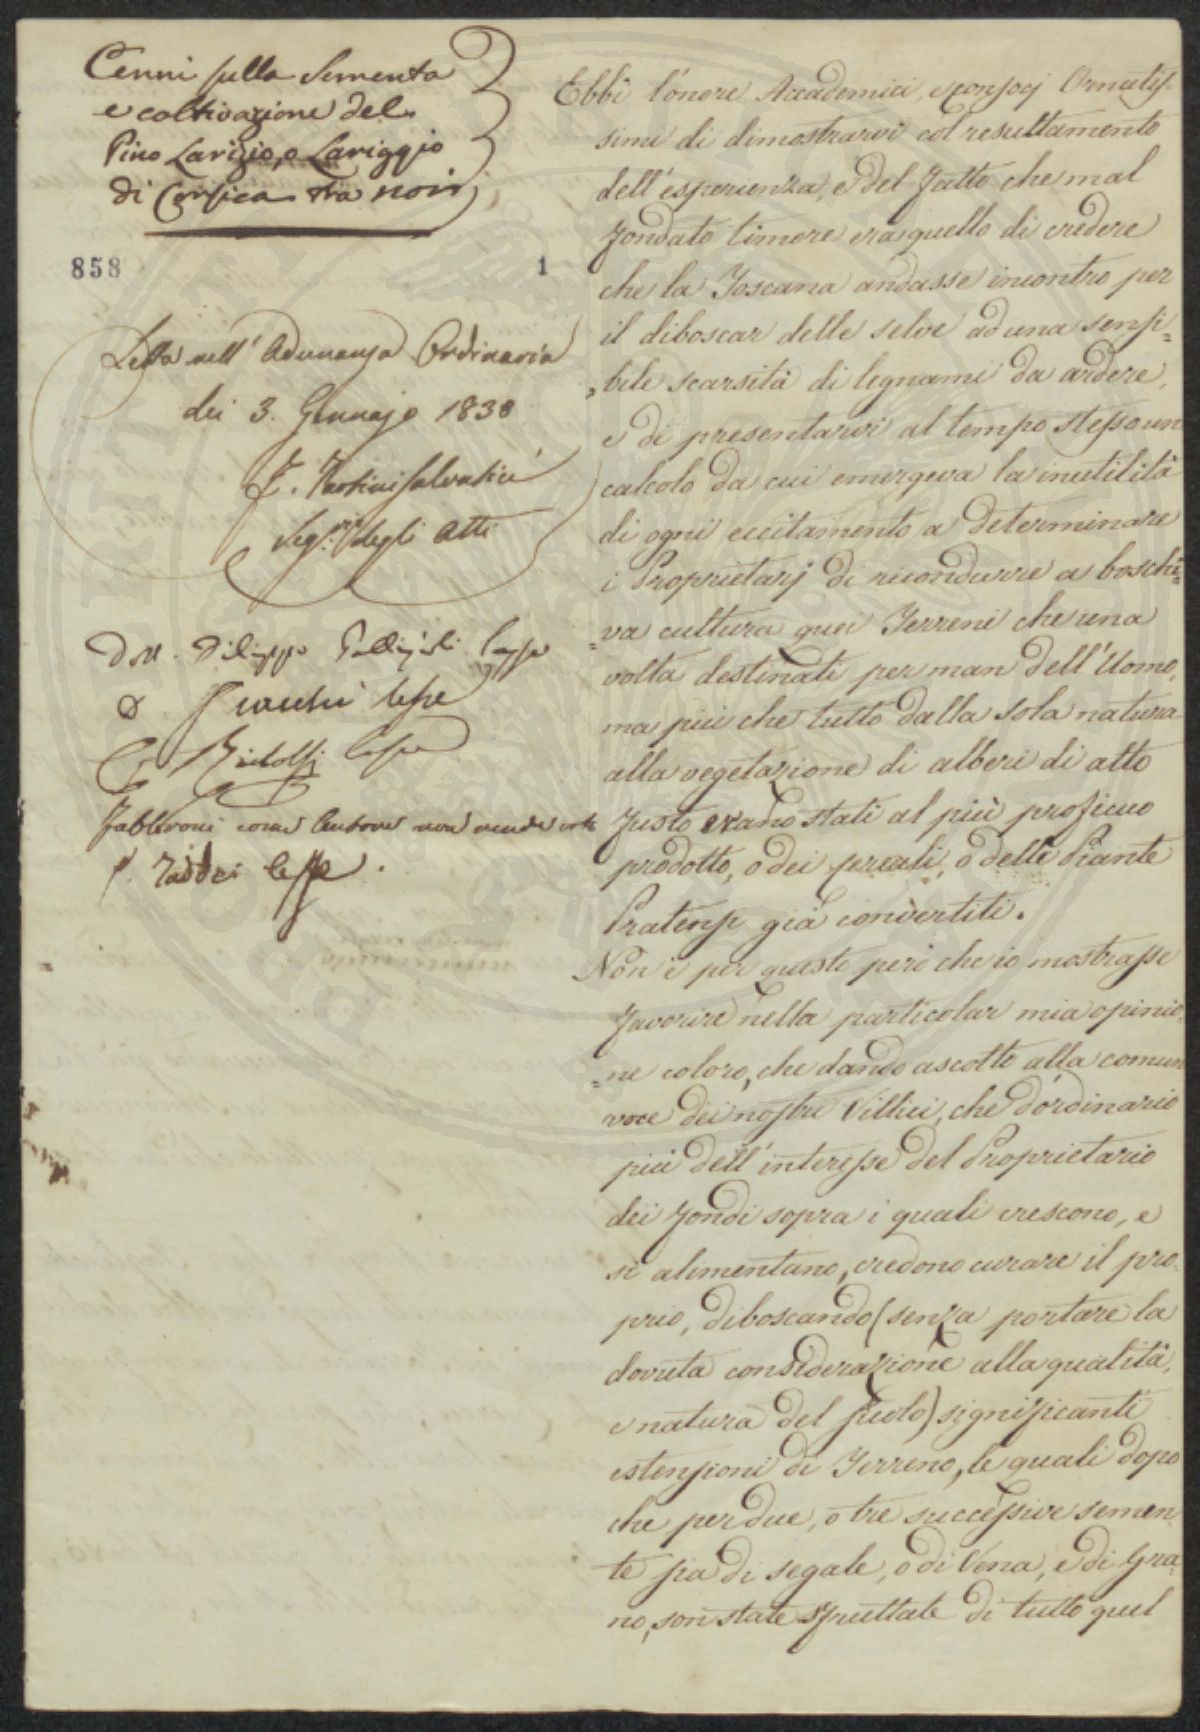 Cenni sulla Sementa
e coltivazione del
Pino Larizio, o Lariggio
di Corsica tra noi
858
1
Letta nell' Adunanza Ordinaria
dei 3. Gennajo 1838
F. Tartini Salvatici
Seg.rio degli Atti
Dott. Filippo Gallizioli lesse
lesse
C. Ridolfi lesse
Fabbroni come Autore non rende voto
Taddei lesse.
Ebbi l'onore Accademici, e consocj Ornatis-
simi di dimostrarvi col resultamento
dell' esperienza, e del fatto che mal
fondato timore era quello di credere
che la Toscana andasse incontro per
il diboscar delle selve ad una sensi=
=bile scarsità di legnami da ardere,
e di presentarvi al tempo stesso un
calcolo da cui emergeva la inutilità
di ogni eccitamento a determinare
i Proprietarj di ricondurre a boschi=
=va cultura quei Terreni che una
volta destinati per man dell' Uomo,
ma più che tutto dalla sola natura
alla vegetazione di alberi di alto
fusto erano stati al più proficuo
prodotto, o dei cereali, o delle Piante
Pratensi già convertiti.
Non è per questo però che io mostrasse
favorire nella particolar mia opinio=
=ne coloro, che dando ascolto alla comun
voce dei nostri Villici, che d'ordinario
più dell' interesse del Proprietario
dei fondi sopra i quali crescono, e
si alimentano, credono curare il pro-
prio, diboscando (senza portare la
dovuta considerazione alla qualità,
e natura del suolo) significanti
estensioni di Terreno, le quali dopo
che per due, o tre successive semen=
te sia di segale, o di Vena, e di Gra=
no, son state sfruttate di tutto quel